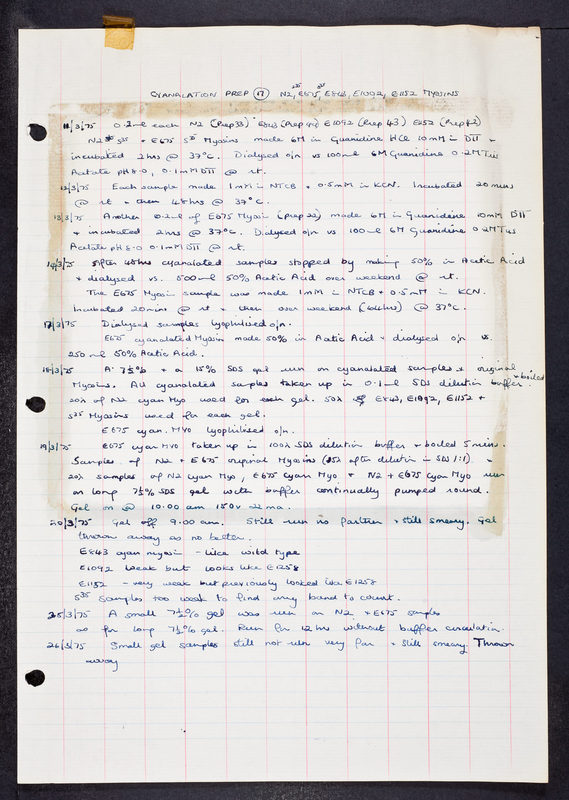 CYANALATION PREP 17 N2, E675, E843, E1092, E1152 MYOSINS
S35 S35
11/3/75 0.2ml each N2 (Prep 33) E843 (Prep 44) E1092 (Prep 43) E1152 (Prep 42)
N2 S35 + E675 S35 Myosins made 6M in Guanidine HCl 10mM in DTT +
incubated 2hrs @ 37°C. Dialysed o/n vs 100ml 6M Guanidine 0.2M Tris
Acetate pH 8.0, 0.1mM DTT @ rt.
12/3/75 Each sample made 1mM in NTCB + 0.5mM in KCN. Incubated 20mins
@ rt + then 48hrs @ 37°C.
13/3/75 Another 0.2ml of E675 Myosin (prep 22) made 6M in Guanidine 10mM DTT
+ incubated 2hrs @ 37°C. Dialysed o/n vs 100ml 6M Guanidine 0.2M Tris
Acetate pH 8.0 0.1mM DTT @ rt.
14/3/75 After 48hrs cyanalated samples stopped by making 50% in Acetic Acid
+ dialysed vs. 500ml 50% Acetic Acid over weekend @ rt.
The E675 Myosin sample was made 1mM in NTCB + 0.5mM in KCN.
Incubated 20mins @ rt + then over weekend (64hrs) @ 37°C.
17/3/75 Dialysed samples lyophilised o/n.
E675 cyanalated Myosin made 50% in Acetic Acid + dialysed o/n vs.
250ml 50% Acetic Acid.
18/3/75 A 7½% + a 15% SDS gel run on cyanalated samples + original
Myosins. All cyanalated samples taken up in 0.1ml SDS dilution buffer + boiled
20λ of N2 cyan Myo used for each gel. 50λ of E843, E1092, E1152 +
S35 Myosins used for each gel.
E675 cyan. Myo lyophilised o/n.
19/3/75 E675 cyan Myo taken up in 100λ SDS dilution buffer + boiled 5mins.
Samples of N2 + E675 original Myosins (25λ after dilution in SDS 1:1) +
20λ samples of N2 cyan Myo, E675 cyan Myo + N2 + E675 cyan Myo run
on long 7½% SDS gel with buffer continually pumped round.
Gel on @ 10.00am 150v 22ma.
20/3/75 Gel off 9.00am. Still run no further + still smeary. Gel
thrown away as no better.
E843 cyan myosin - like wild type
E1092 weak but looks like E1258
E1152 - very weak but previously looked like E1258
S35 samples too weak to find any band to count.
25/3/75 A small 7½% gel was run on N2 + E675 samples
as for long 7½% gel. Run for 12 hrs without buffer circulation.
26/3/75 Small gel samples still not run very far + still smeary. Thrown
away